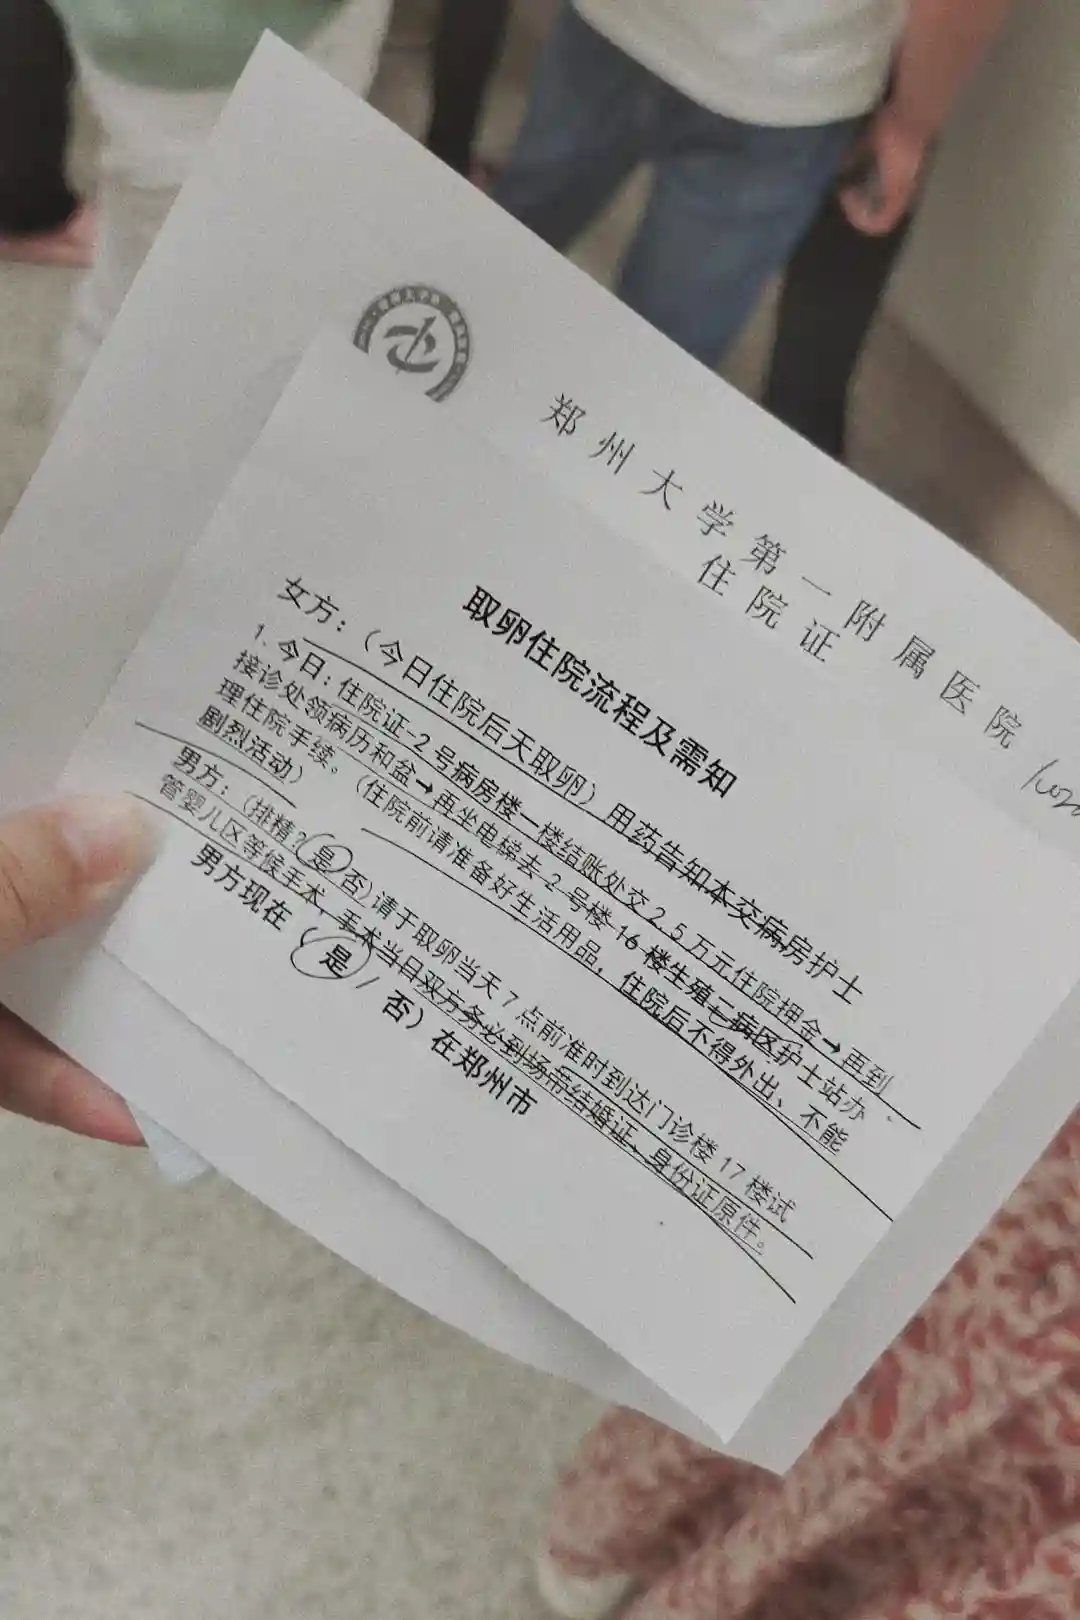 郑州大学第一附属医院
住院证
取卵住院流程及需知
女方：（今日住院后天取卵）用药告知本交病房护士
1. 今日：住院证-2号病房楼一楼结账处交2.5万元住院押金→再到
接诊处领病历和盆→再坐电梯去2号楼16楼生殖二病区护士站办
理住院手续。（住院前请准备好生活用品，住院后不得外出、不能
剧烈活动）
男方：（排精？是/否）请于取卵当天7点前准时到达门诊楼17楼试
管婴儿区等候手术，手术当日双方务必到场带结婚证、身份证原件。
男方现在（是/否）在郑州市